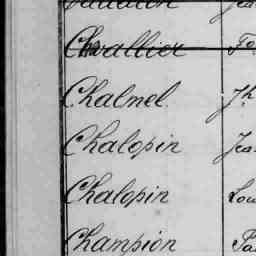 Chevallier
Chalmel Jh
Chalopin Jea
Chalopin Lou
Champion